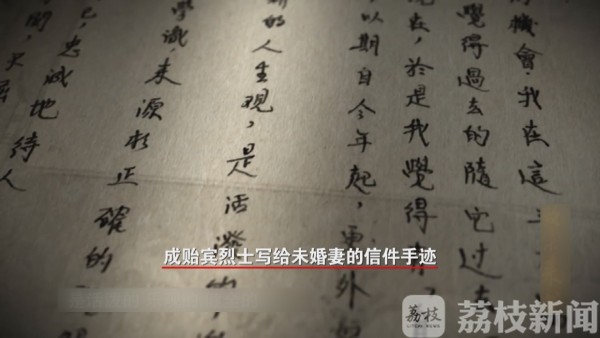 機會，我在這
覺得過去的隨它過去
於是我覺得有
以期自今年起，更外
的人生觀，是活潑的，
學識，來源於正確的
己，忠誠地
待人
成贻宾烈士写给未婚妻的信件手迹
荔枝
LITCHI NEWS
荔枝新闻